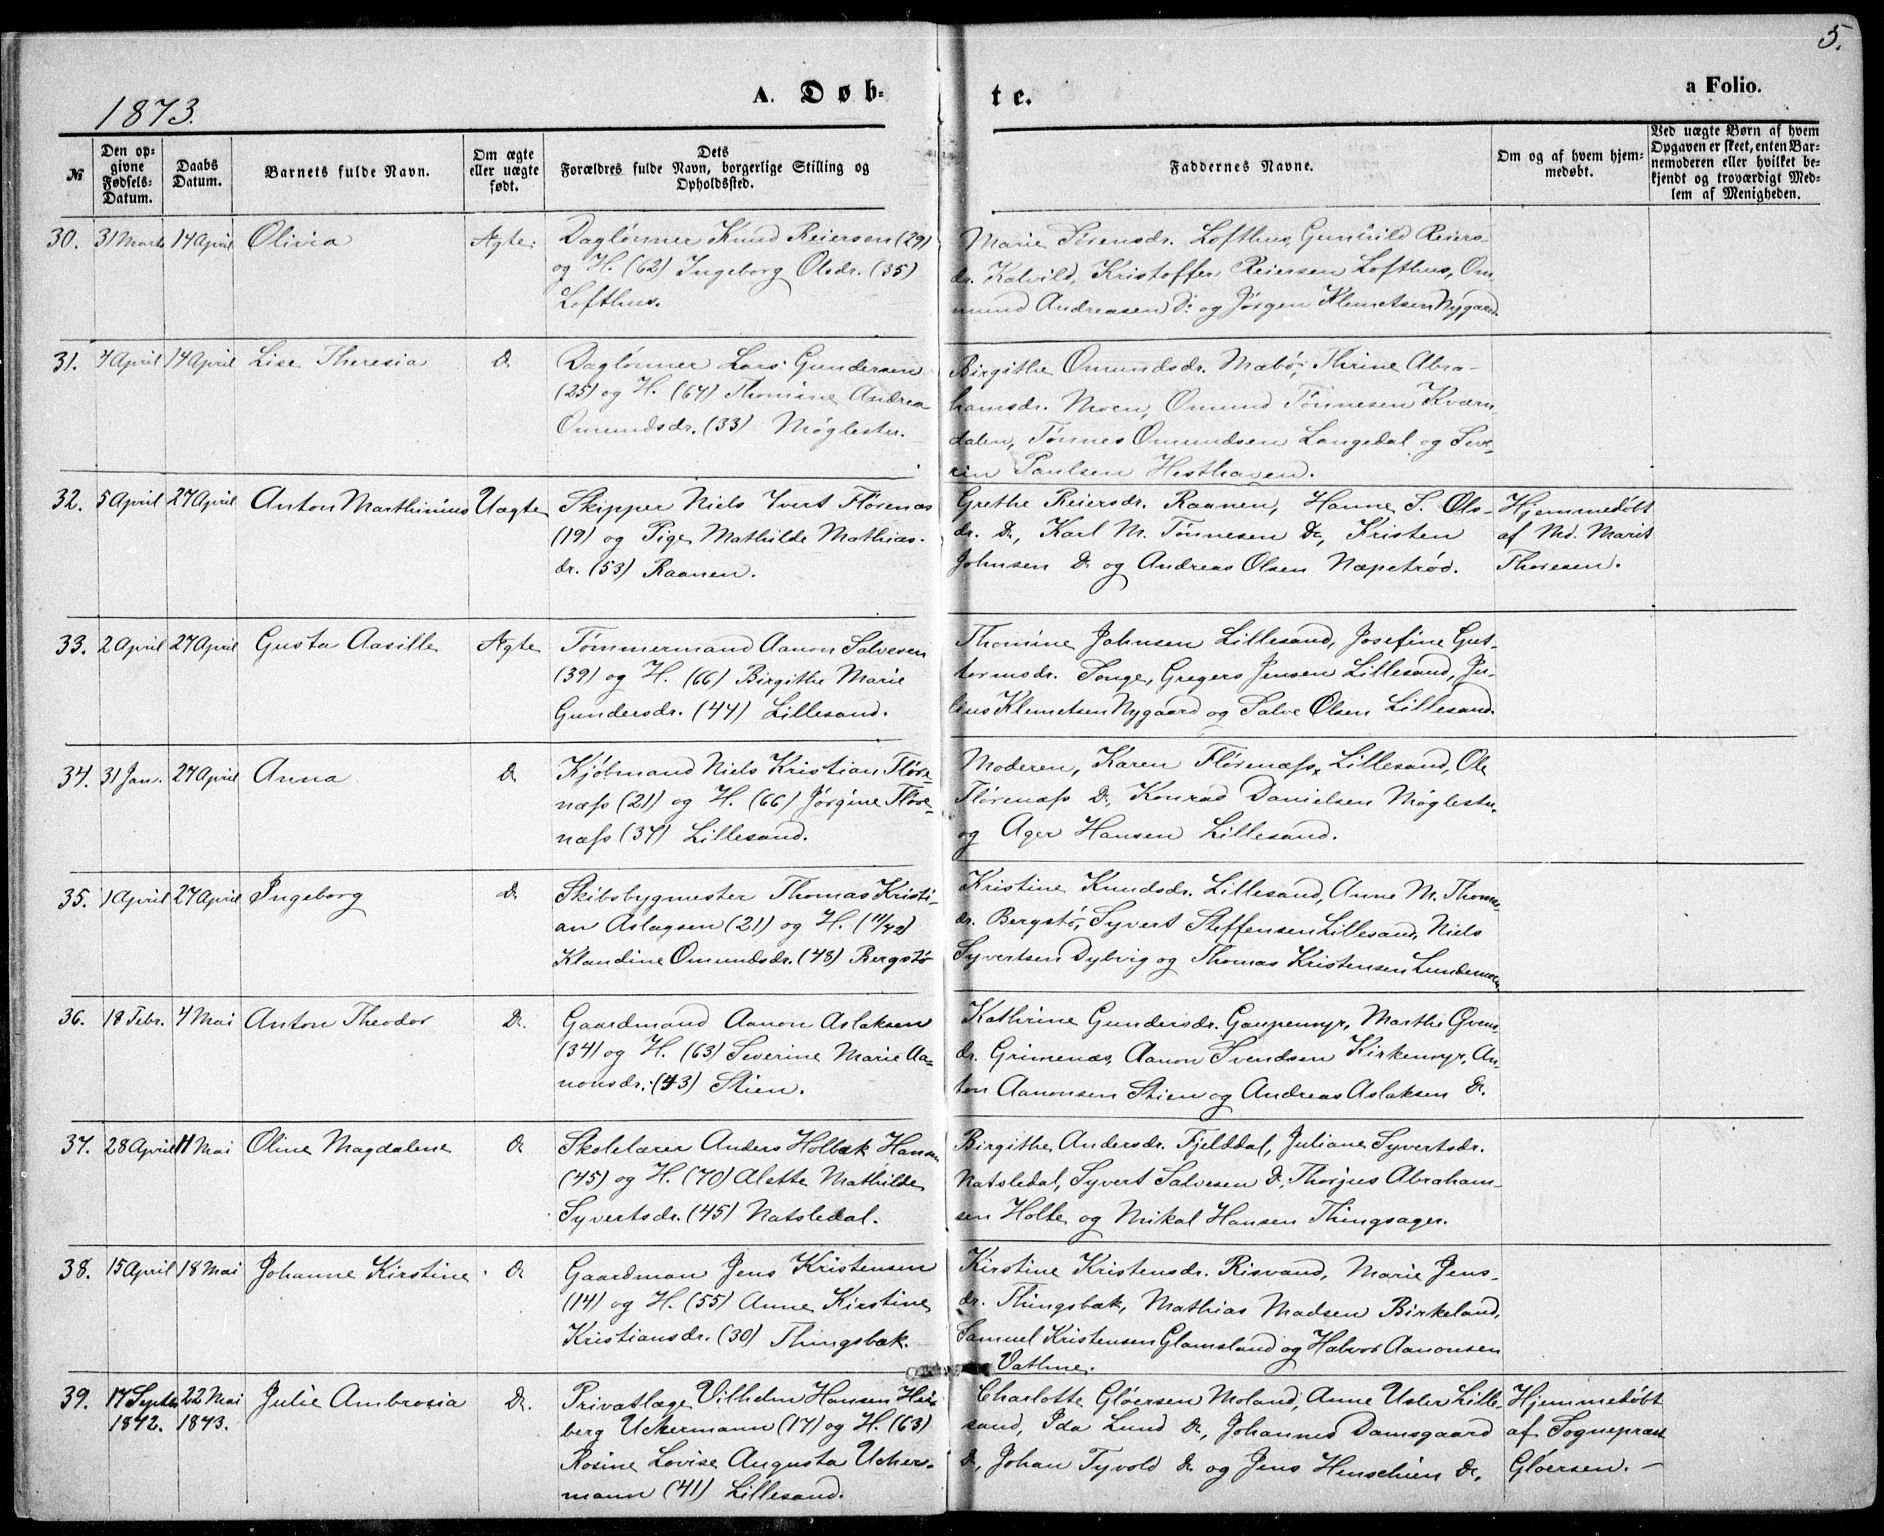 5.
1873.
A. Døb-
te.
a Folio.
№
Den op-
givne
Fødsels-
Datum.
Daabs
Datum.
Barnets fulde Navn.
Om ægte
eller uægte
født.
Dets
Forældres fulde Navn, borgerlige Stilling og
Opholdssted.
Faddernes Navne.
Om og af hvem hjem-
medøbt.
Ved uægte Børn af hvem
Opgaven er skeet, enten Bar-
nemoderen eller hvilket be-
kjendt og troværdigt Med-
lem af Menigheden.
30. 31 Marts 14 April Olivia Ægte.
Daglønner Knud Reiersen (29)
og H. (62) Ingeborg Olsdr. (35)
Lofthus.
Marie Sørensdr. Lofthus, Gunhild Reiers-
dr. Kalvild, Kristoffer Reiersen Lofthus, Om-
mund Andreasen D: og Jørgen Klemetsen Nygaard.
31. 7 April 14 April Lise Theresia Do
Daglønner Lars Gundersen
(25) og H. (67) Thomine Andrea
Omundsdr. (33) Møglestu.
Birgithe Omundsdr. Mæbø, Thrine Abra-
hamsdr. Moen, Omund Tønnesen Kværn-
dalen, Tønnes Omundsen Langedal og Seve-
rin Paulsen Hesthaven.
32. 5 April 27 April Anton Marthinius Uægte
Skipper Niels Yvert Flørenæs
(19) og Pige Mathilde Mathias-
dr. (53) Raanen.
Grethe Reiersdr. Raanen, Hanne S. Ols-
dr. Do, Karl M. Tønnesen Do, Kristen
Johnsen Do og Andreas Olsen Næpetrød.
Hjemmedøbt
af Md. Marit
Thoresen.
33. 2 April 27 April Gusta Aasille Ægte
Tømmermand Aanon Salvesen
(39) og H. (66) Birgithe Marie
Gundersdr. (44) Lillesand.
Thomine Johnsen Lillesand, Josefine Gut-
tormsdr. Songe, Gregers Jensen Lillesand, Ju-
lius Klemetsen Nygaard og Salve Olsen Lillesand.
34. 31 Jan. 27 April Anna Do
Kjøbmand Niels Kristian Fløre-
næss (21) og H. (66) Jørgine Fløre-
næss (37) Lillesand.
Moderen, Karen Flørenæss, Lillesand, Ole
Flørenæss Do, Konrad Danielsen Møglestu
og Ager Hansen Lillesand.
35. 1 April 27 April Ingeborg Do
Skibsbygmester Thomas Kristi-
an Aslagsen (21) og H. (11/72)
Klandine Omundsdr. (48) Bergstø
Kristine Knudsdr. Lillesand, Anne M. Thomas-
dr. Bergstø, Syvert Steffensen Lillesand, Niels
Syvertsen Dybvig og Thomas Kristensen Lundemoen.
36. 18 Febr. 4 Mai Anton Theodor Do.
Gaardmand Aanon Aslaksen
(34) og H. (63) Severine Marie Aa-
nonsdr. (43) Stien.
Kathrine Gundersdr. Gaupemyr, Marthe Øvens-
dr. Grimenæs, Aanon Svendsen Kirkemyr, An-
ton Aanonsen Stien og Andreas Aslaksen Do.
37. 28 April 11 Mai Oline Magdalene Do
Skolelærer Anders Holbæk Hansen
(45) og H. (70) Alette Mathilde
Syvertsdr. (45) Natsledal.
Birgithe Andersdr. Fjelddal, Juliane Syvertsdr.
Natsledal, Syvert Salvesen Do, Thorjus Abraham-
sen Holte og Mikal Hansen Thingsager.
38. 15 April 18 Mai Johanne Kirstine Do
Gaardman Jens Kristensen
(14) og H. (55) Anne Kirstine
Kristiansdr. (30) Thingsbæk.
Kirstine Kristensdr. Risvand, Marie Jens-
dr. Thingsbæk, Mathias Madsen Birkeland,
Samuel Kristensen Glamsland og Halvor Aanonsen
Vatline.
39. 17 Septbr 1872. 22 Mai 1873. Julie Ambrosia Do.
Privatlæge Vilhelm Hansen Hei-
berg Uckermann (17) og H. (63)
Rosine Lovise Augusta Ucher-
mann (41) Lillesand.
Charlotte Gløersen Moland, Anne Usler Lille-
sand, Ida Lund Do, Johannes Damsgaard
Do, Johan Tyvold Do og Jens Henschien Do.
Hjemmedøbt
af Sognepræst
Gløersen. —